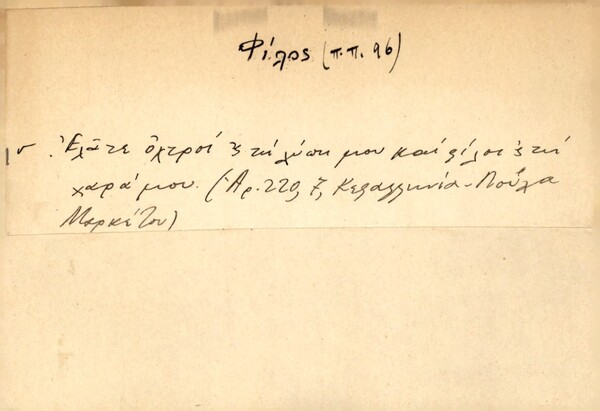 Φίλος (π.π. 96)
Ἐλᾶτε ὀχτροί 'ς τή λύπη μου καί φίλοι 'ς τή
χαρά μου. (Ἀρ. 220, 7, Κεφαλληνία - Λούλα
Μαρκέτου)